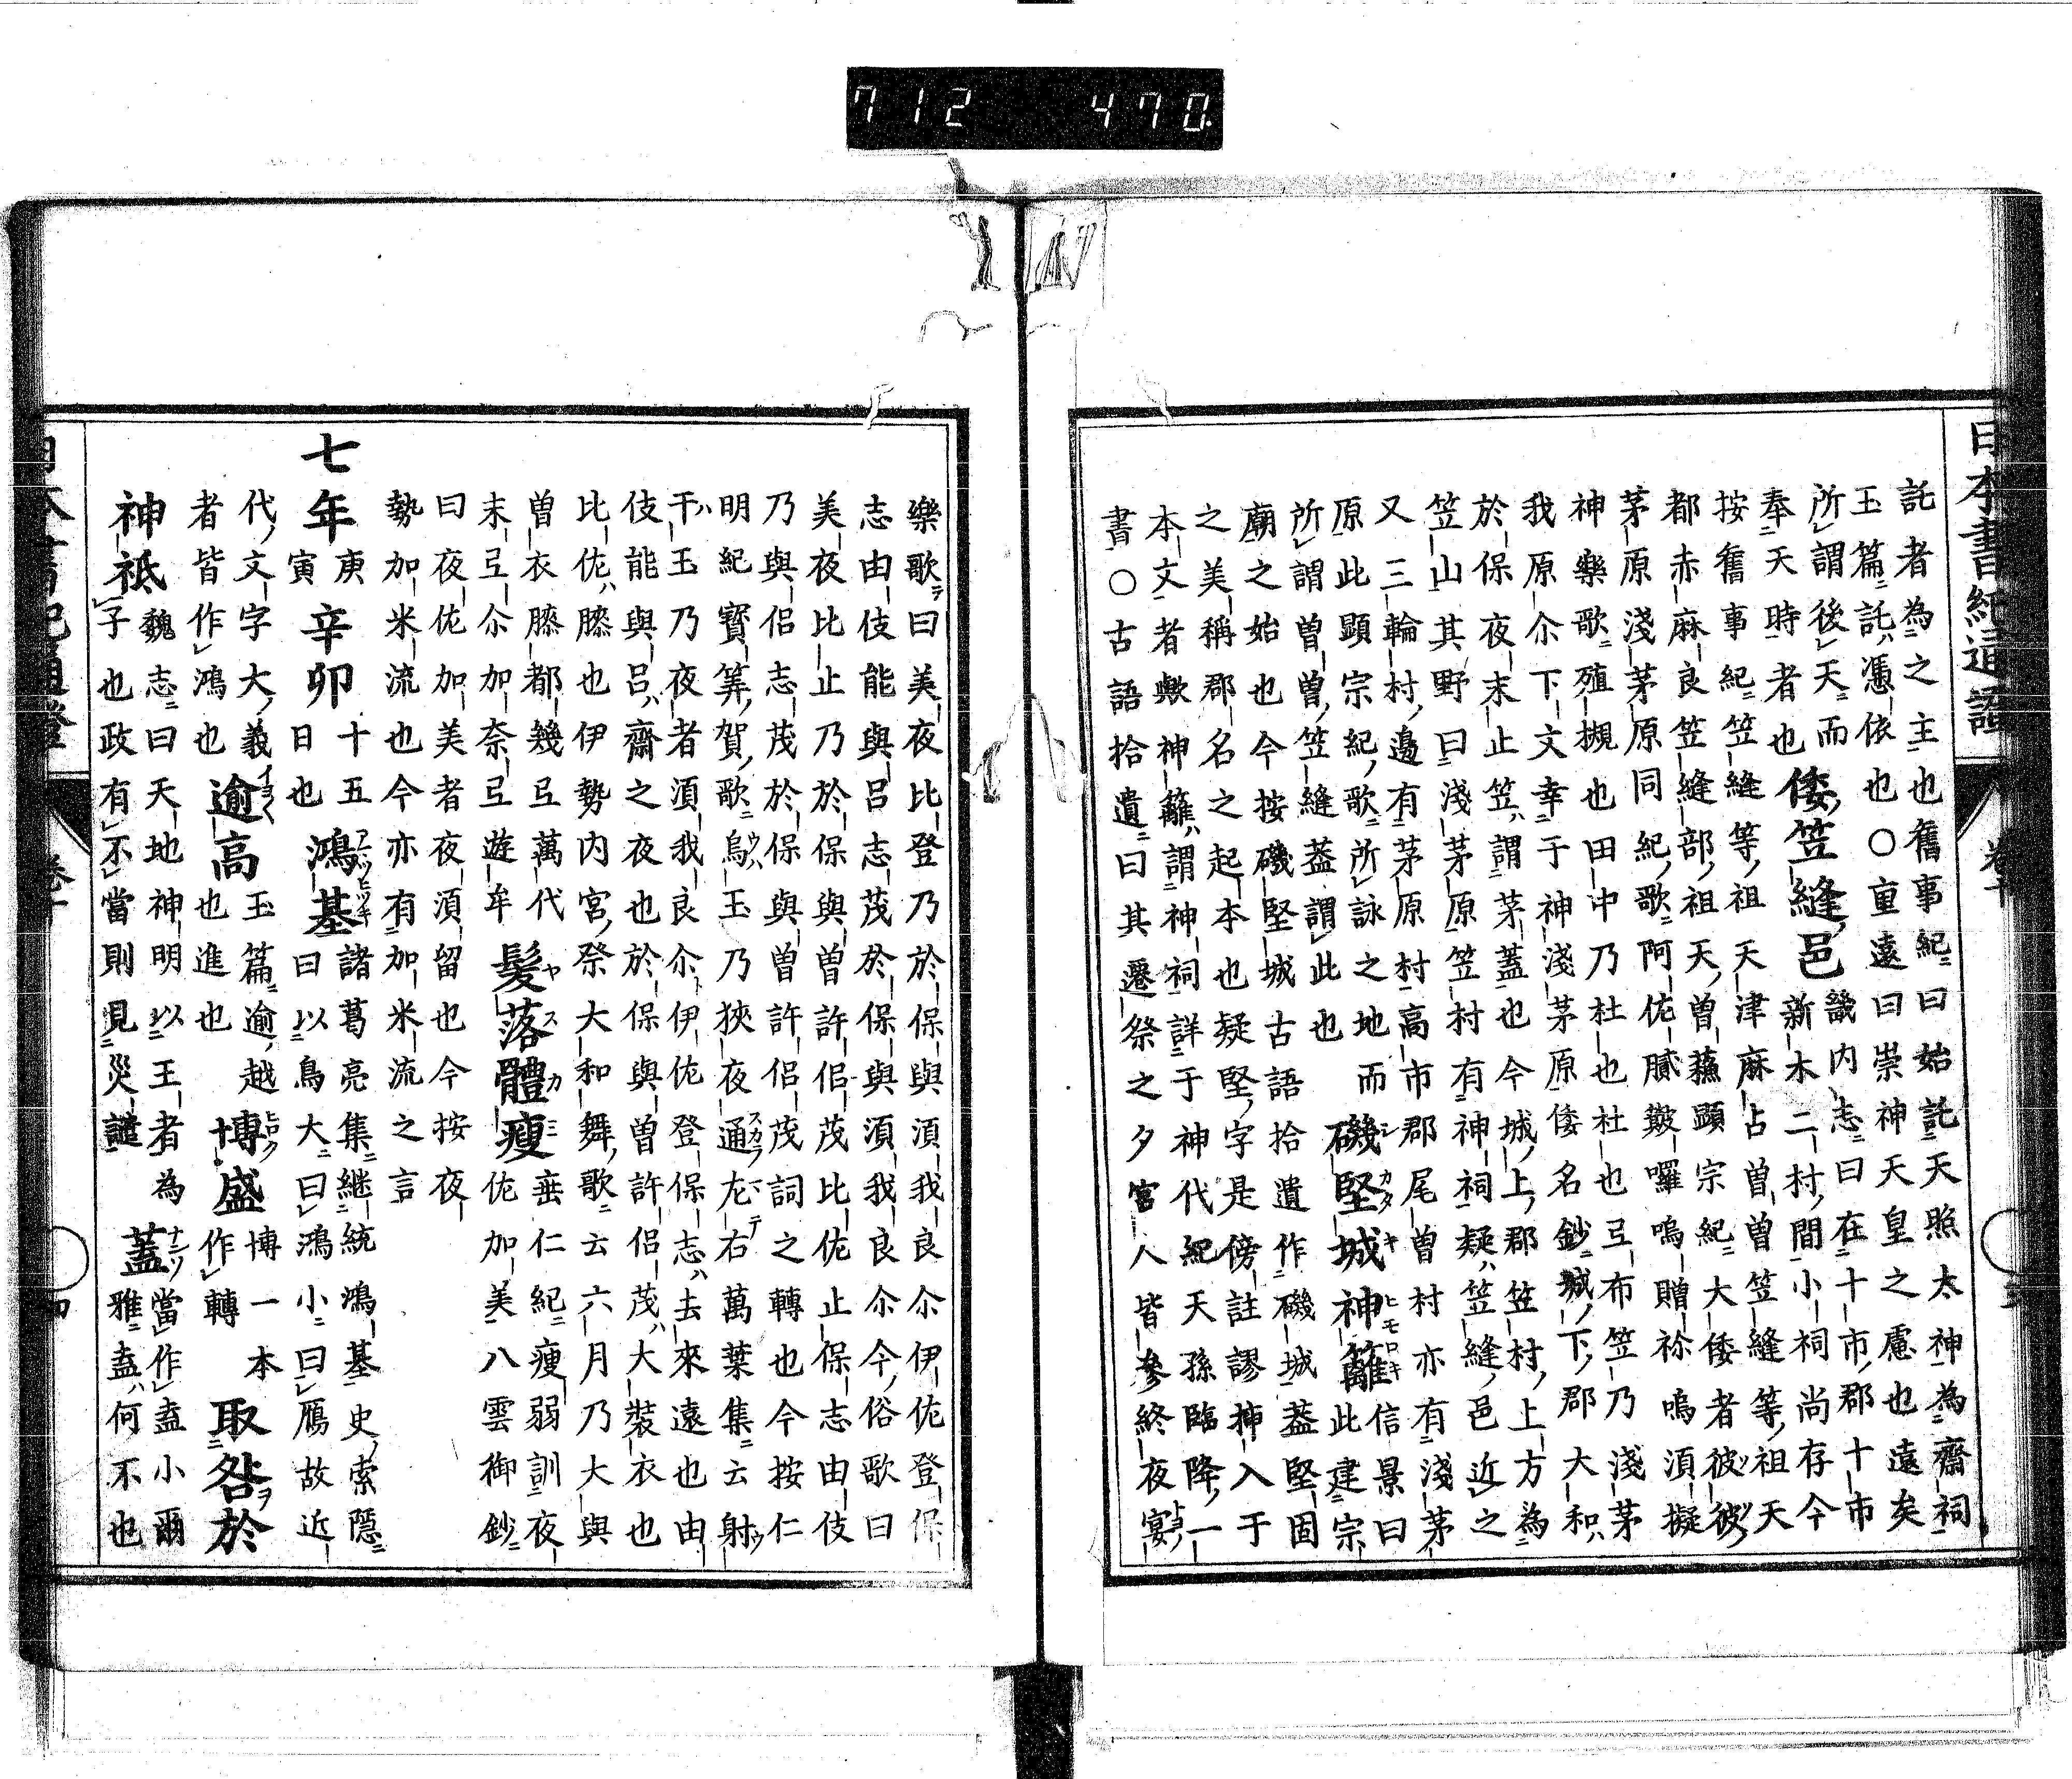 日本書紀通證 卷十 三
託者為之主也舊事紀曰始託天照太神為齋祠
玉篇託憑依也○重遠曰崇神天皇之慮也遠矣
所謂後天而
奉天時者也
倭笠縫邑
畿内志曰在十市郡十市
新木二村間小祠尚存今
按舊事紀笠縫等祖天津麻占曽曽笠縫等祖天
都赤麻良笠縫部祖天曽蘓顯宗紀大倭者彼彼
茅原淺茅原同紀歌阿佐膩簸囉嗚贈祢嗚湏擬
神樂歌殖槻也田中乃杜也杜也弖布笠乃淺茅
我原尒下文幸于神淺茅原倭名鈔城下郡大和
於保夜末止笠謂茅蓋也今城上郡笠村上方為
笠山其野曰淺茅原笠村有神祠疑笠縫邑近之
又三輪村邊有茅原村高市郡尾曽村亦有淺茅
原此顯宗紀歌所詠之地而
所謂曽曽笠縫蓋謂此也
磯堅城神籬
信景曰
此建宗
廟之始也今按磯堅城古語拾遺作磯城蓋堅固
之美稱郡名之起本也疑堅字是傍註謬挿入于
本文者歟神籬謂神祠詳于神代紀天孫臨降一
書○古語拾遺曰其遷祭之夕宮人皆參終夜宴
樂歌曰美夜比登乃於保與湏我良尒伊佐登保
志由伎能與呂志茂於保與湏我良尒今俗歌曰
美夜比止乃於保與曽許侶茂比佐止保志由伎
乃與侶志茂於保與曽許侶茂詞之轉也今按仁
明紀寳筭賀歌烏玉乃狹夜通左右萬葉集云射
干玉乃夜者湏我良尒伊佐登保志去來遠也由
伎能與呂齋之夜也於保與曽許侶茂大裝衣也
比佐縢也伊勢内宮祭大和舞歌云六月乃大與
曽衣縢都幾弖萬代
末弖尒加奈弖遊牟
髮落體瘦
垂仁紀瘦弱訓夜
佐加美八雲御鈔
曰夜佐加美者夜湏留也今按夜
勢加米流也今亦有加米流之言
七年
庚
寅
辛卯
十五
日也
鴻基
諸葛亮集継統鴻基史索隱
曰以鳥大曰鴻小曰鴈故近
代文字大義
者皆作鴻也
逾高
玉篇逾越
也進也
博盛
博一本
作轉
取咎於
神祇
魏志曰天地神明以王者為
子也政有不當則見災譴
蓋
當作盍小爾
雅盍何不也
日本書紀通證 卷十 四
712 470.